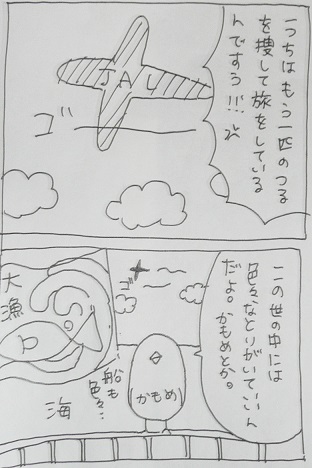 うちはもう一匹のつる
を捜して旅をしている
んですう!!!
JAL
ゴ
この世の中には
色々なとりがいていいん
だよ。かもめとか。
ゴ
かもめ
船も
色々…
大漁
海